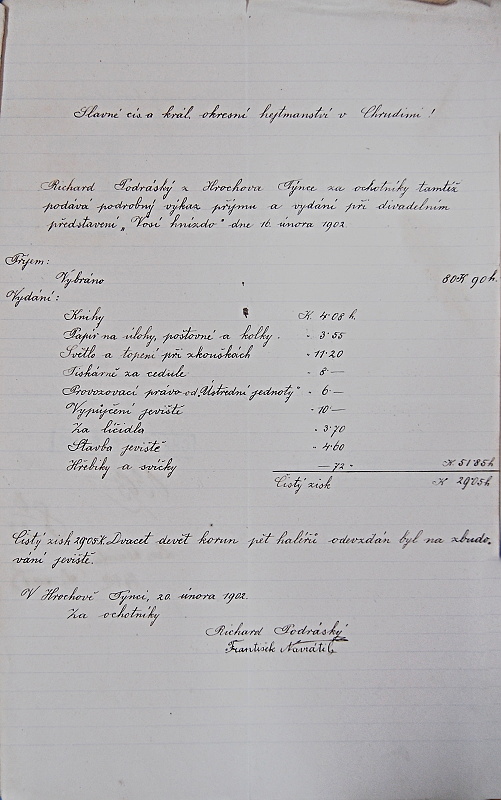 Slavné cís. a král. okresní hejtmanství v Chrudimi!
Richard Podráský z Hrochova Týnce za ochotníky tamtéž
podává podrobný výkaz příjmu a vydání při divadelním
představení „Vosí hnízdo" dne 16. února 1902.
Příjem:
Vybráno 80 K 90 h.
Vydání:
Knihy K. 4·08 h.
Papír na úlohy, poštovné a kolky. " 3·55
Světlo a topení při zkouškách " 11·20
Tiskárně za cedule " 8 —
Provozovací právo od „Ústřední jednoty" " 6 —
Vypůjčení jeviště " 10 —
Za líčidla " 3·70
Stavba jeviště " 4·60
Hřebíky a svíčky — 72 " K 51·85 h
Čistý zisk K 29·05 h
Čistý zisk 29·05 K. Dvacet devět korun pět haléřů odevzdán byl na zbudo-
vání jeviště.
V Hrochově Týnci, 20. února 1902.
Za ochotníky
Richard Podráský
František Navrátil